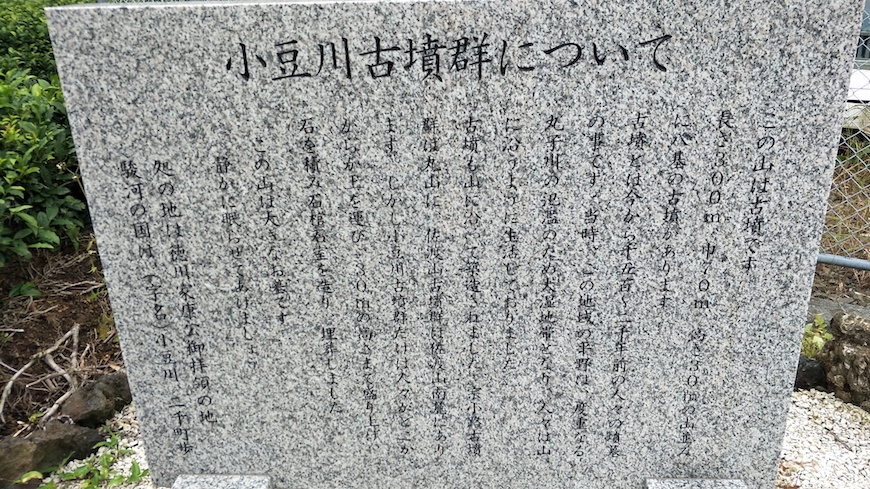 小豆川古墳群について
この山は古墳です
長さ300m 巾70m 高さ30mの山並み
に八基の古墳があります
古墳とは今から千五百〜二千年前の人々の墳墓
の事です。当時、この地域の平野は、度重なる
丸子川の氾濫のため大湿地帯となり、人々は山
に沿うように生活しておりました
古墳も山に沿って築造されました
群は丸山に、佐渡山古墳群は佐渡山南麓にあり
ます。しかし小豆川古墳群だけは人々がどこか
からか土を運び、30mの高さまで盛り上げ、
石を積み石棺石室を造り、埋葬しました
この山は大きなお墓です
静かに眠らせてあげましょう
処の地は徳川家康公御拝領の地
駿河の国は(字名)小豆川 二千町歩